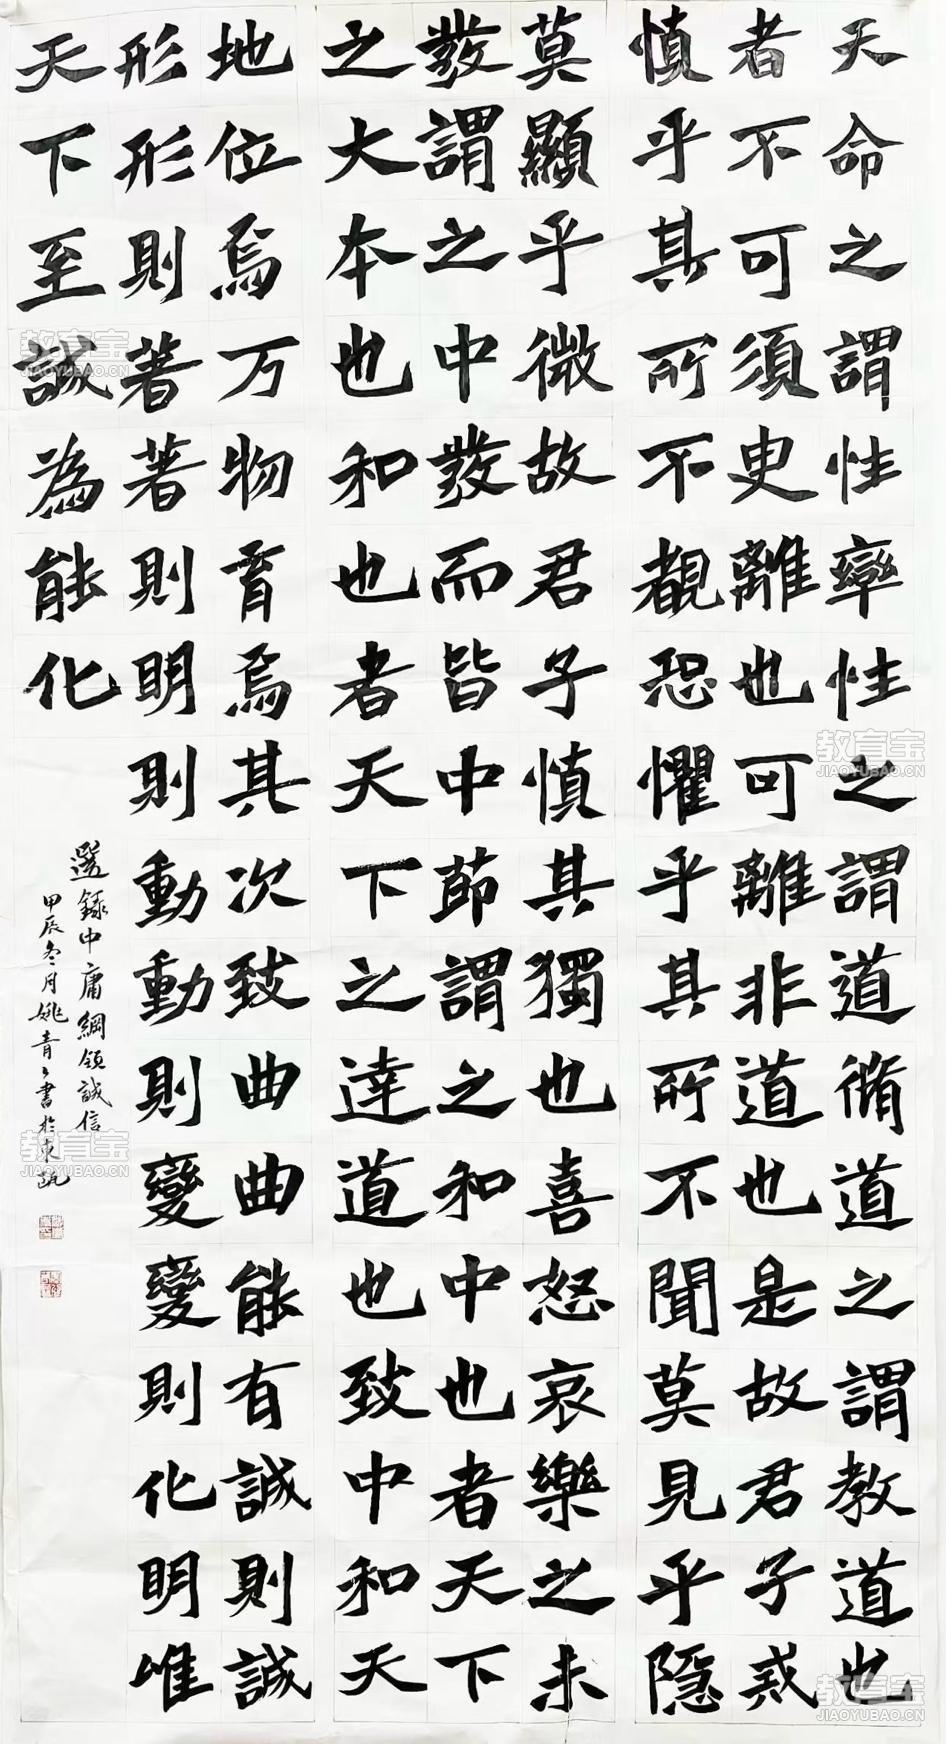 天命之謂性率性之謂道脩道之謂教道也
者不可須臾離也可離非道也是故君子戒
慎乎其所不覩恐懼乎其所不聞莫見乎隐
莫顯乎微故君子慎其獨也喜怒哀樂之未
發謂之中發而皆中節謂之和中也者天下
之大本也和也者天下之達道也致中和天
地位焉万物育焉其次致曲曲能有誠則誠
形形則著著則明則動動則變變則化明唯
天下至誠為能化
選録中庸綱領誠信
甲辰冬月姚青々書於東甌
教育宝
JIAOYUBAO.CN
教育宝
JIAOYUBAO.CN
教育宝
JIAOYUBAO.CN
教育宝
JIAOYUBAO.CN